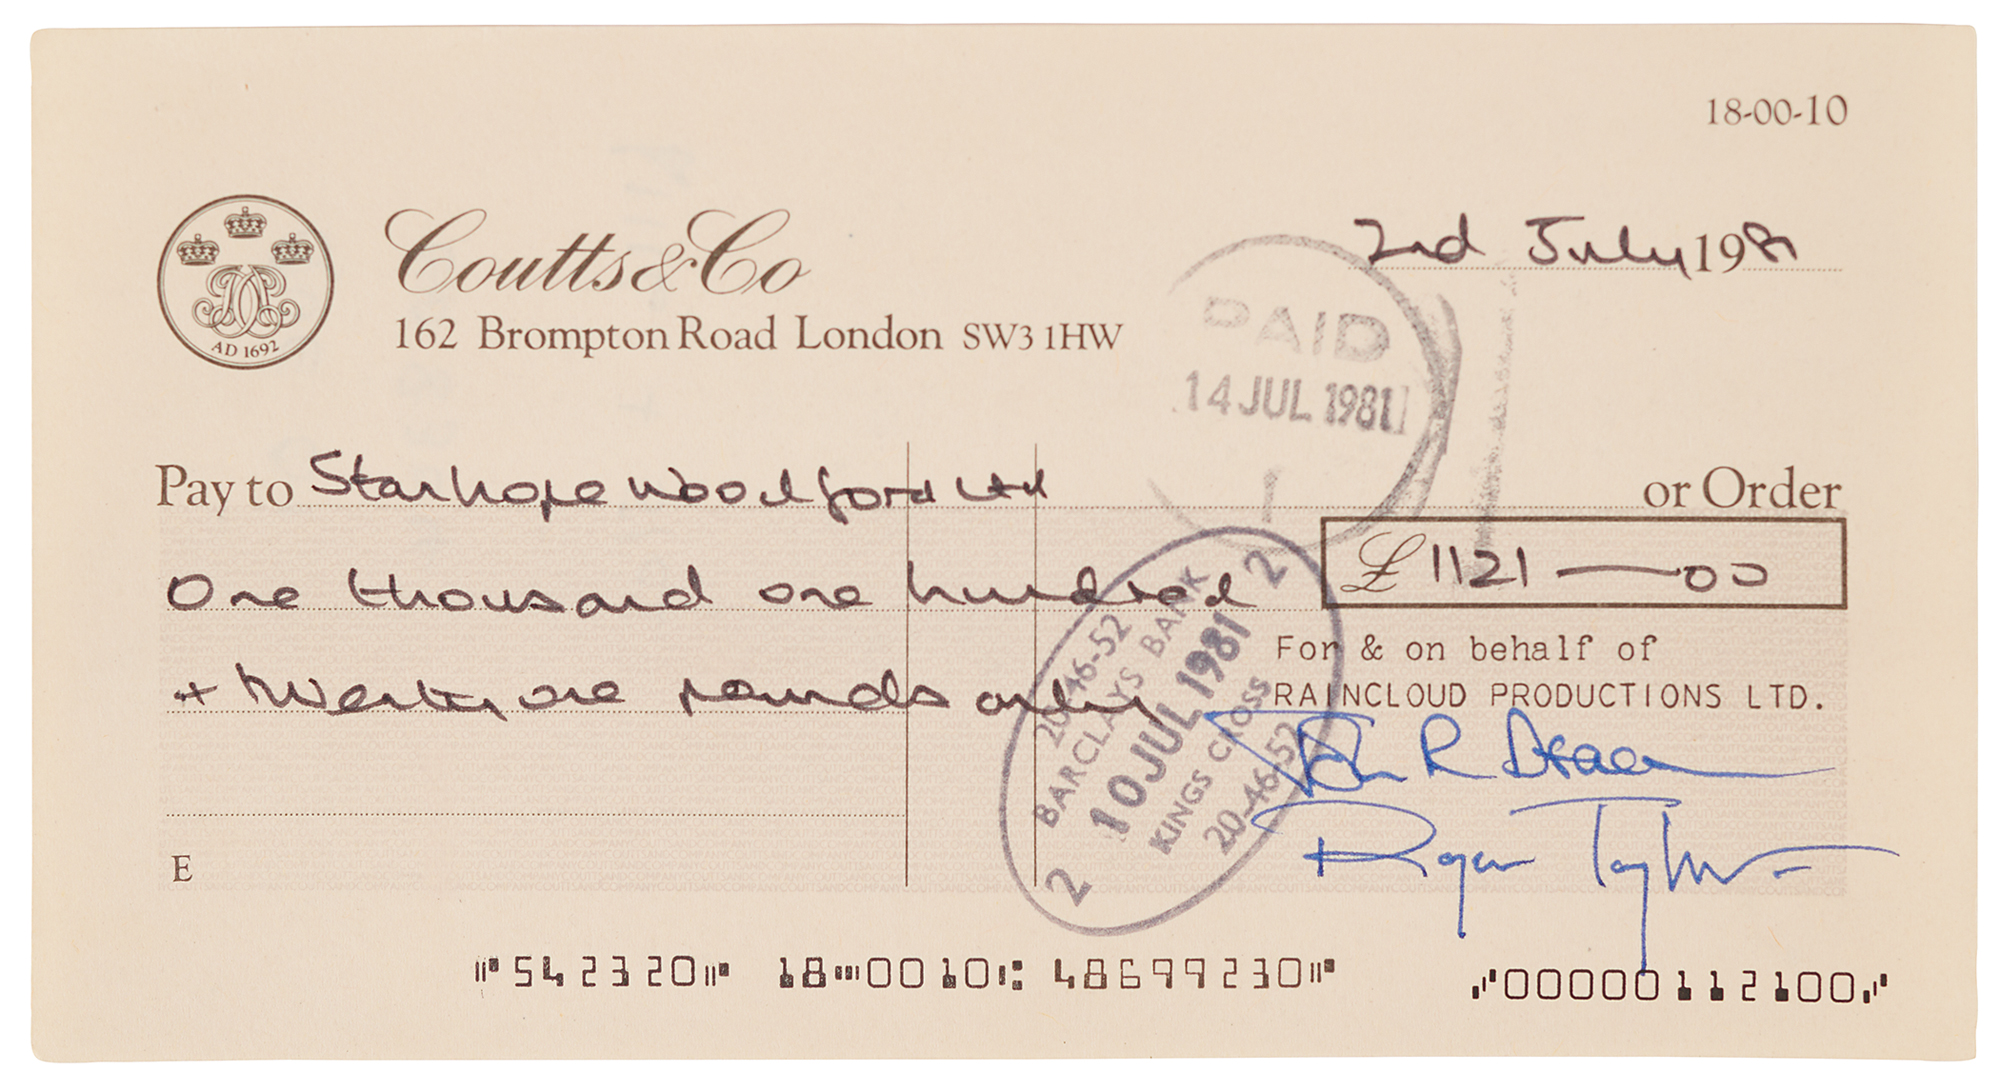 18-00-10
2nd July 1981
AD 1692
Coutts & Co
162 Brompton Road London SW3 1HW
PAID
14 JUL 1981
Pay to Stanhope Woodford Ltd or Order
One thousand one hundred
£1121—00
+ twenty one pounds only
For & on behalf of
RAINCLOUD PRODUCTIONS LTD.
2
20-46-52
BARCLAYS BANK
10 JUL 1981
KINGS CROSS
20-46-52
2
John R Deacon
Roger Taylor
E
⑈542320⑈ 18⑉0010⑆ 48699230⑈ ⑇00000112100⑇